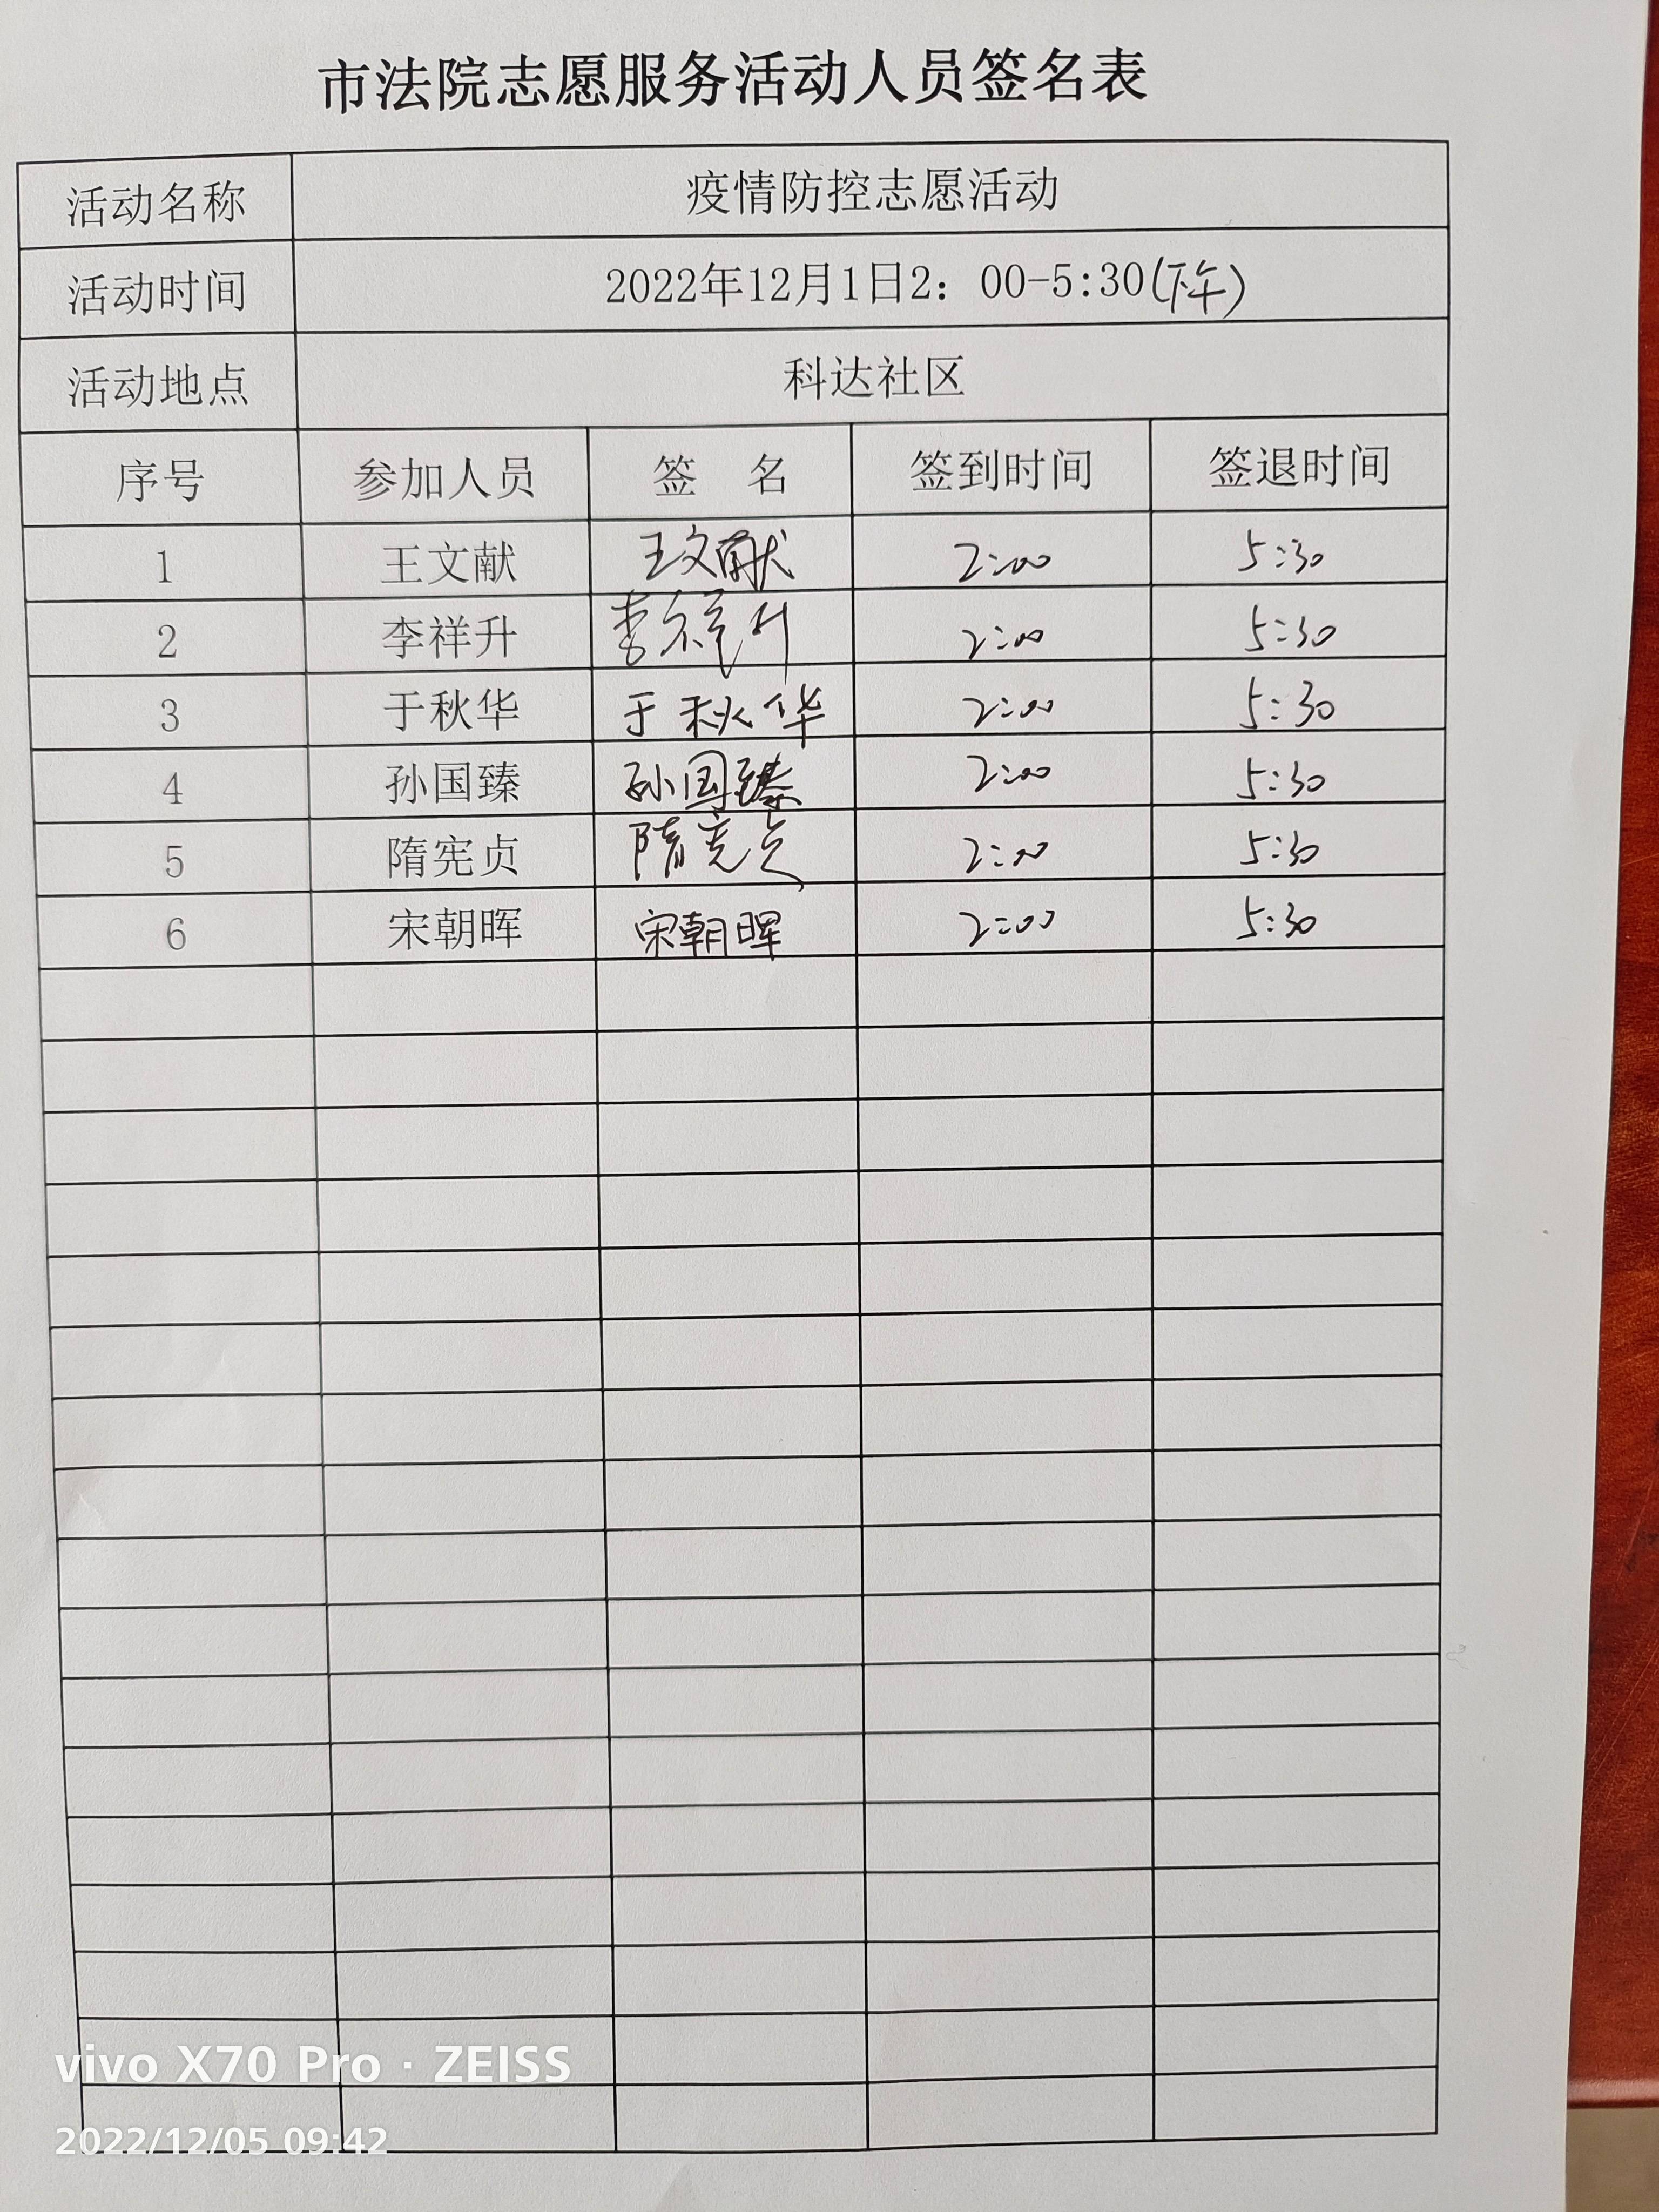 市法院志愿服务活动人员签名表
活动名称 疫情防控志愿活动
活动时间 2022年12月1日2：00-5:30(下午)
活动地点 科达社区
序号 参加人员 签 名 签到时间 签退时间
1 王文献 王文献 2:00 5:30
2 李祥升 李祥升 2:00 5:30
3 于秋华 于秋华 2:00 5:30
4 孙国臻 孙国臻 2:00 5:30
5 隋宪贞 隋宪贞 2:00 5:30
6 宋朝晖 宋朝晖 2:00 5:30
vivo X70 Pro · ZEISS
2022/12/05 09:42